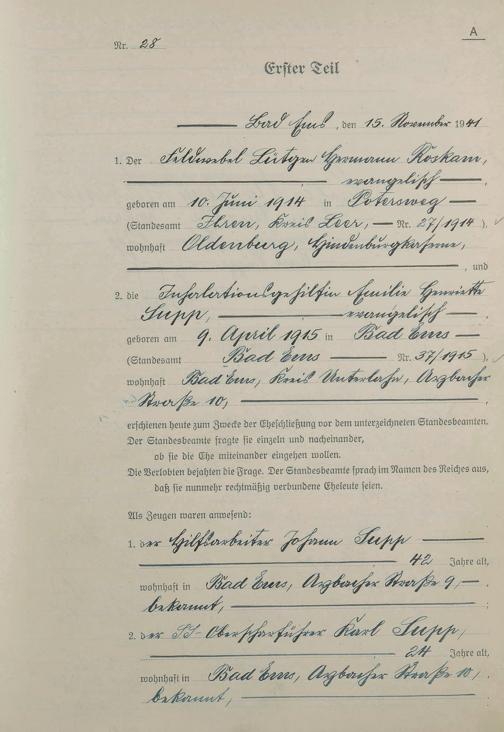 A
Nr. 28
Erster Teil
Bad Ems, den 15. November 1941
1. Der Feldwebel Lütgen Hermann Roskam,
evangelisch
geboren am 10. Juni 1914 in Potersweg
(Standesamt Ihren, Kreis Leer, Nr. 27/1914 ).
wohnhaft Oldenburg, Hindenburgkaserne,
, und
2. die Inhalationsgehilfin Emilie Henriette
Supp, evangelisch
geboren am 9. April 1915 in Bad Ems
(Standesamt Bad Ems Nr. 37/1915 ),
wohnhaft Bad Ems, Kreis Unterlahn, Arzbacher
Straße 10,
erschienen heute zum Zwecke der Eheschließung vor dem unterzeichneten Standesbeamten.
Der Standesbeamte fragte sie einzeln und nacheinander,
ob sie die Ehe miteinander eingehen wollen.
Die Verlobten bejahten die Frage. Der Standesbeamte sprach im Namen des Reiches aus,
daß sie nunmehr rechtmäßig verbundene Eheleute seien.
Als Zeugen waren anwesend:
1. der Hilfsarbeiter Johann Supp
42 Jahre alt,
wohnhaft in Bad Ems, Arzbacher Straße 9,
bekannt, ;
2. der SS-Oberscharführer Karl Supp,
24 Jahre alt,
wohnhaft in Bad Ems, Arzbacher Straße 10,
bekannt,